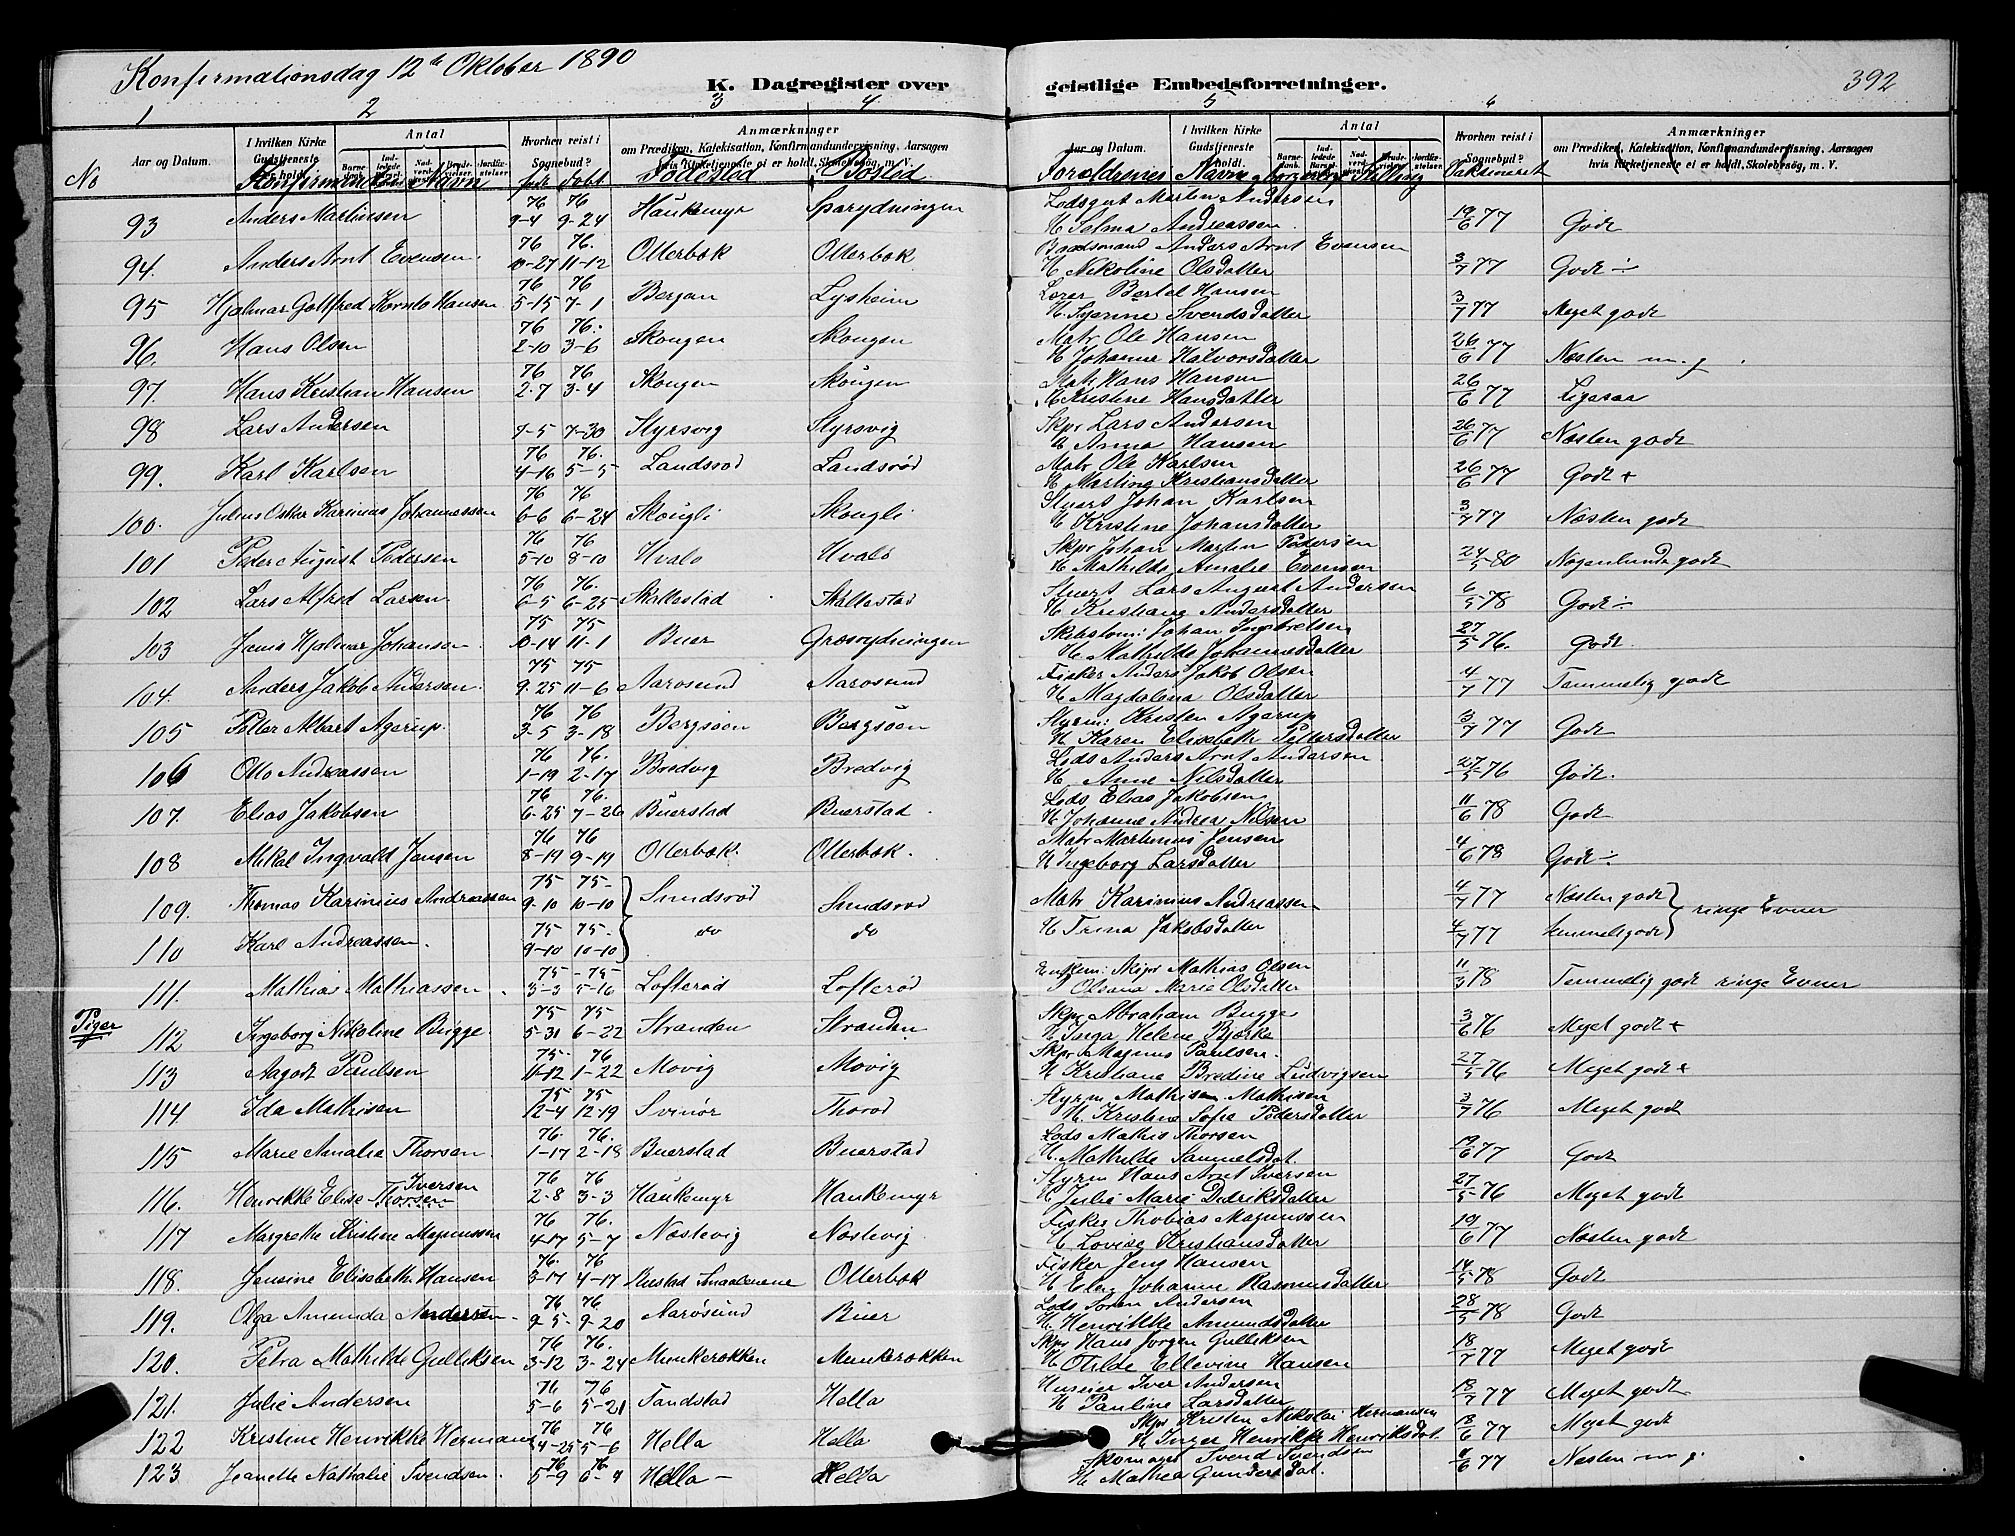 Konfirmationsdag 12te Oktober 1890
K. Dagregister over geistlige Embedsforretninger. 392
1 2 3 4 5 6
Aar og Datum. I hvilken Kirke Gudstjeneste er holdt. Antal Hvorhen reist i Sognebud? Anmærkninger om Prædiken, Katekisation, Konfirmandundervisning, Aarsagen hvis Kirketjeneste ei er holdt, Skolebesøg, m. V.
Aar og Datum. I hvilken Kirke Gudstjeneste er holdt. Antal Hvorhen reist i Sognebud? Anmærkninger om Prædiken, Katekisation, Konfirmandundervisning, Aarsagen hvis Kirketjeneste ei er holdt, Skolebesøg, m. V.
No Konfirmandens Navn født døbt Fødested Bosted Forældrenes Navn og borgerlige Stilling Vaksineret
93 Anders Martinsen 76 9-4 76 9-24 Haukemyr Sparydningen Lodsgut Martin Andersen H Selma Andreassen 19/6 77 Godt
94. Anders Arnt Evensen 76 10-27 76. 11-12 Ollerbæk Ollerbæk Baadsmand Anders Arnt Evensen H Nikoline Olsdatter 3/7 77 Godt ÷
95 Hjalmar Gottfred Hansen 76 5-15 76 7-1 Bergan Lysheim Lærer Bertel Hansen H. Syrine Svendsdatter 3/7 77 Meget godt
96. Hans Olsen 76 2-10 76. 3-6 Skougen Skougen Matr Ole Hansen H Johanne Halvorsdatter 26/6 77 Næsten m. g.
97. Hans Kristian Hansen 76 2-7 76 3-4 Skougen Skougen Matr Hans Hansen H Kristine Hansdatter 26/6 77
98 Lars Andersen 7-5 7-30 Styrsvig Styrsvig Skpr Lars Andersen H Anna Hansen 26/6 77 Næsten godt
99. Karl Karlsen 76 4-16 76. 5-5 Landsrød Landsrød Matr Ole Karlsen H Martine Kristiansdatter 26/6 77 Godt +
100. Julius Oskar Karinius Johannessen 76 6-6 76 6-24 Skougli Skougli Stuert Johan Karlsen H Kristine Johansdatter 3/7 77 Næsten godt
101 Peder August Pedersen 76 5-10 76 8-10 Hvalø Hvalø Skpr Johan Martin Pedersen H Mathilde Amalie Evensen 24/5 80 Nogenlunde godt
102 Lars Alfred Larsen 76 6-5 76. 6-25 Skallestad Skallestad Stuert Lars August Andersen H Kristiane Andersdatter 6/5 78 Godt ÷
103 Jens Hjalmar Johansen 75 10-14 75 11-1 Buer Græsrydningen Skibstøm: Johan Ingbretsen H. Mathilde Johannesdatter 27/5 76. Godt.
104. Anders Jakob Andersen. 75 9-25 75 11-6 Aarøsund Aarøsund Fisker Anders Jakob Olsen H Magdalena Olsdatter 4/7 77 Temmelig godt
105 Petter Albert Agerup. 76 3-5 76 3-18 Bergsøen Bergsøen Styrm: Kristen Agerup H Karen Elisabeth Pettersdatter 3/7 77 Godt
106 Otto Andreassen 76 1-19 76. 2-17 Bredvig Bredvig Lods Anders Arnt Andersen H Anne Nilsdatter 27/5 76 Godt.
107. Elias Jakobsen 76 6-25 76. 7-26 Buerstad Buerstad Lods Elias Jakobsen H Johanne Andrea Nilsen 11/6 78 Godt
108 Mikal Ingvald Jensen 76 8-19 76 9-19 Ollerbæk. Ollerbæk. Matr Martinius Jensen H Ingeborg Larsdatter 4/6 78 Godt ÷
109. Thomas Karinius Andreassen 75 9-10 75- 10-10 Sundsrød Sundsrød Matr Karinius Andreassen 4/7 77 Næsten godt
110 Karl Andreassen. 75 9-10 75. 10-10 do do H Trina Jakobsdatter 4/7 77 temmeligodt ringe Evner
111. Mathias Mathiassen 75 3-3 75 5-16 Løfterød Løfterød Enkem: Skpr Mathias Olsen Olsdatter 11/3 78 Temmelig godt ringe Evner
Piger
112 Ingeborg Nikoline Bugge. 75 5-31 75 6-22 Stranden Stranden Skpr Abraham Bugge H Inga Helene Bjerke 3/6 76 Meget godt +
113 Aagodt Paulsen 75- 11-12 76 1-22 Movig Movig Skpr Magnus Paulsen. H Kristiane Bredine Ludvigsen 27/5 76 Meget godt +
114. Ida Mathisen 75 12-4 75 12-19 Svinør Thorød Styrm Mathisen Mathisen H. Kristine Sofie Pedersdatter 3/7 76 Meget godt
115 Marie Amalie Thorsen 76. 1-17 76. 2-18 Buerstad Buerstad Lods Mathis Thorsen H. Mathilde Samuelsdat. 19/6 77 Godt
116. Henrikke Elise Thorsen Iversen 76 2-8 76 3-3 Haukemyr Haukemyr Styrm Hans Arnt Iversen H Julie Marie Didriksdatter 27/5 76 Meget godt
117 Margrethe Kristine Magnussen 76 4-17 76. 5-7 Næstevig Næstevig Fisker Thobias Magnussen H Lovise Kristiansdatter 19/6 77 Næsten godt
118. Jensine Elisabeth Hansen 76. 3-17 76 4-17 Smaalenene Ollerbæk Fisker Jens Hansen H Johanne Rasmusdatter 14/5 78 Godt
119. Olga Amunda Andersen 76 9-5 76 9-20 Aarøsund Buer Lods Søren Andersen H. Henrikke Amundsdatter 28/5 78 Godt
120. Petra Mathilde Gulliksen 76 3-12 76. 3-24 Munkerækken Munkerækken Skpr Hans Jørgen Gulliksen H Otilde Ellevine Hansen 18/7 77 Meget godt
121. Julie Andersen 76 5-6 76 5-21 Sandstad Hella Huseier Iver Andersen H Pauline Larsdatter 18/7 77 Meget godt
122 Kristine Henrikke Hermans 76 4-25 76 5-6 Hella Hella Skpr Kristen Nikolai Hermansen H Inger Henrikke Henriksdat. 18/6 77 Meget godt
123 Jeanette Nathalie Svendsen. 76 5-9 76 6-4 Hella - Hella Skomager Svend Svendsen H Mathea Gundersdat. 77 Næsten m g.